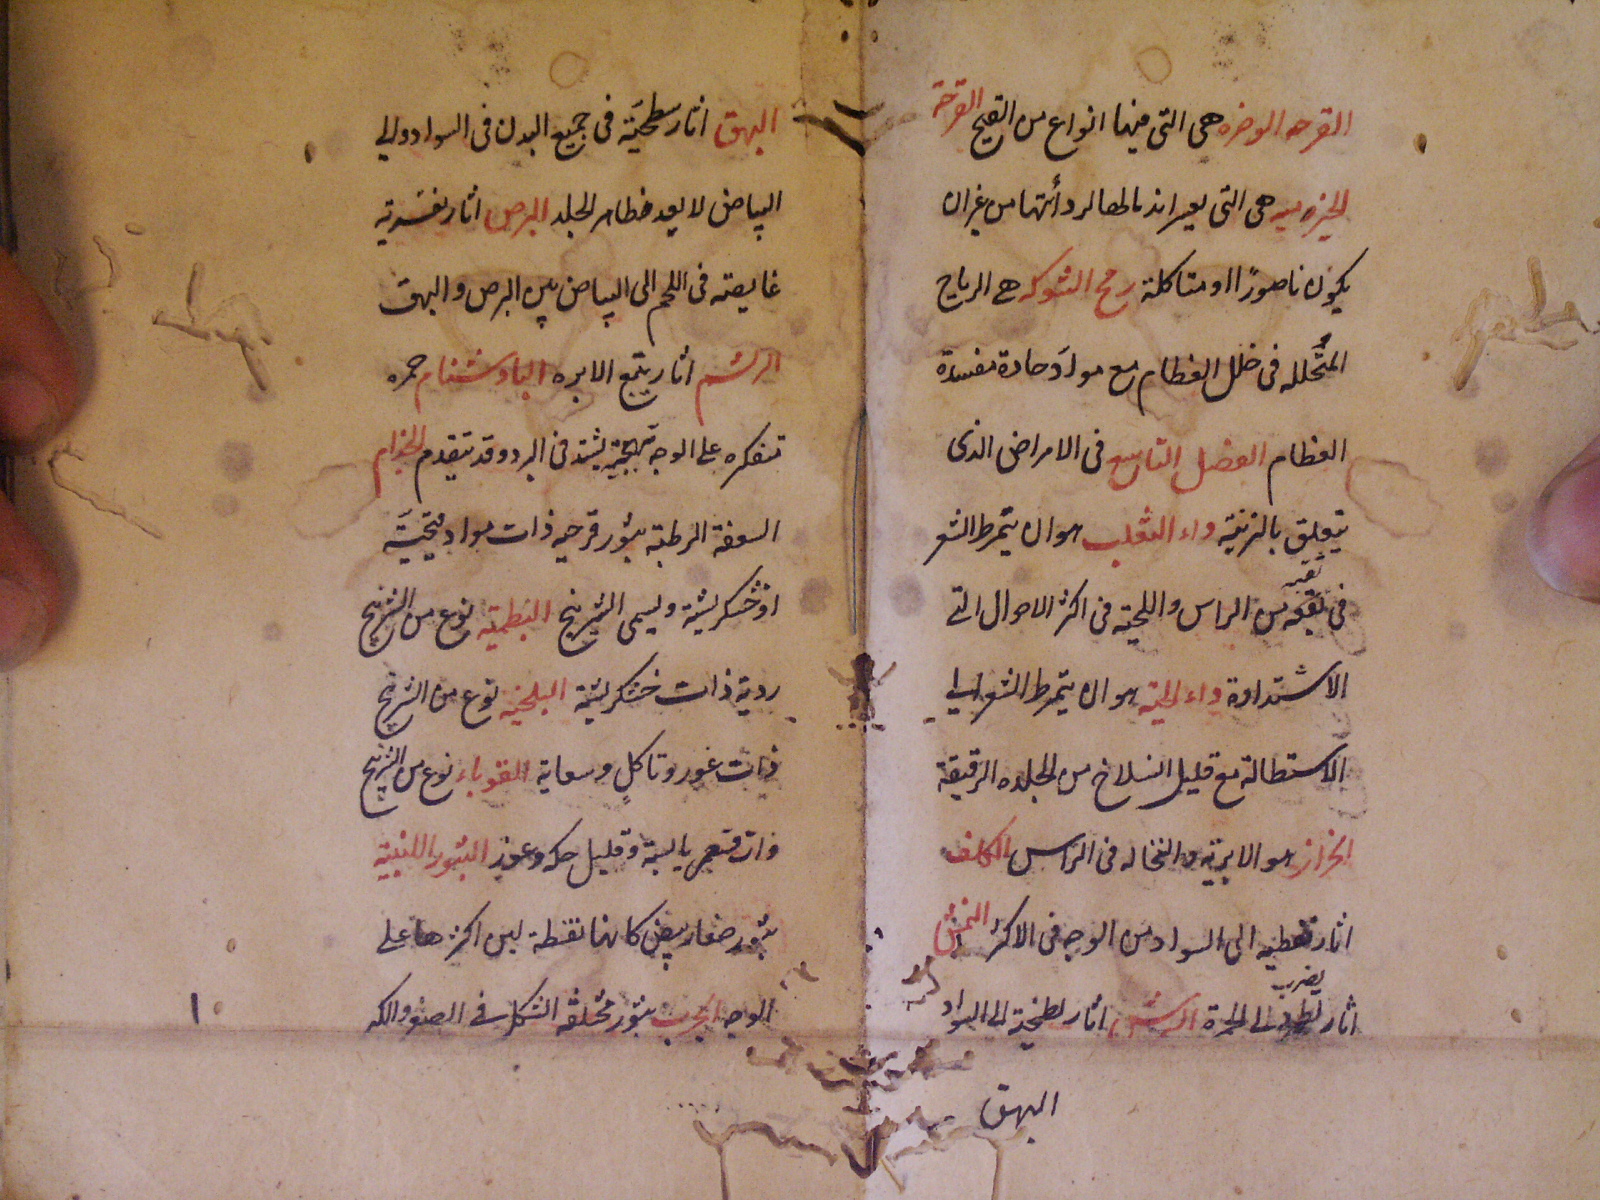 القرحه الوضره هى التى فيها انواع من القيح القرحة
الخيرونيه هى التى يعسر اندمالها لرداءتها من غيران
يكون ناصورًا او متاكلة ريح الشوكه هى الرياح
المتُحلله فى خلل العظام مع موادَ حادة مفسدة
العظام الفصل التاسع فى الامراض الذى
يتعلق بالزينة داء الثعلب هو ان يتمرط الشعر
فى بقعه من الراس واللحية فى اكثر الاحوال الى
بقعه
الاستدارة داء الحية هو ان يتمرط الشعر الى
الاستطالة مع قليل انسلاخ من الجلده الرقيقة
الحزاز هو الابرية والنخاله فى الراس الكلف
اثار نقطيه الى السواد من الوجه فى الاكثر النمش
اثار يضرب الى الحمرة البرش اثار لطخية الى السواد
البهق
البهق اثار سطحيَة فى جميع البدن فى السواد والى
البياض لا يعد وظاهر الجلد البرص اثار
غايصته فى اللحم الى البياض بين البرص والبهق
الوشم اثار يتبع الابره البادشنام حمره
على الوجه يشتد فى البرد وقد يتقدم الجذام
السعفة الرطبه بثور قرحيه ذات مواد قيحيَة
او خشكريشة ويسمى الشيرينج البطمية نوع من الشيرينج
ردية ذات خشكريشة البلخيه نوع من الشيرينج
ذات غور وتاكلٍ وسعاية القوباء نوع من الشيرينج
يابسة وقليل حكه وغور البثور اللبنية
بثور صغار بيض كانها نقطة لبن اكثرها على
الوجه الجرب بثور مختلفة الشكل فى الصغر والكبر